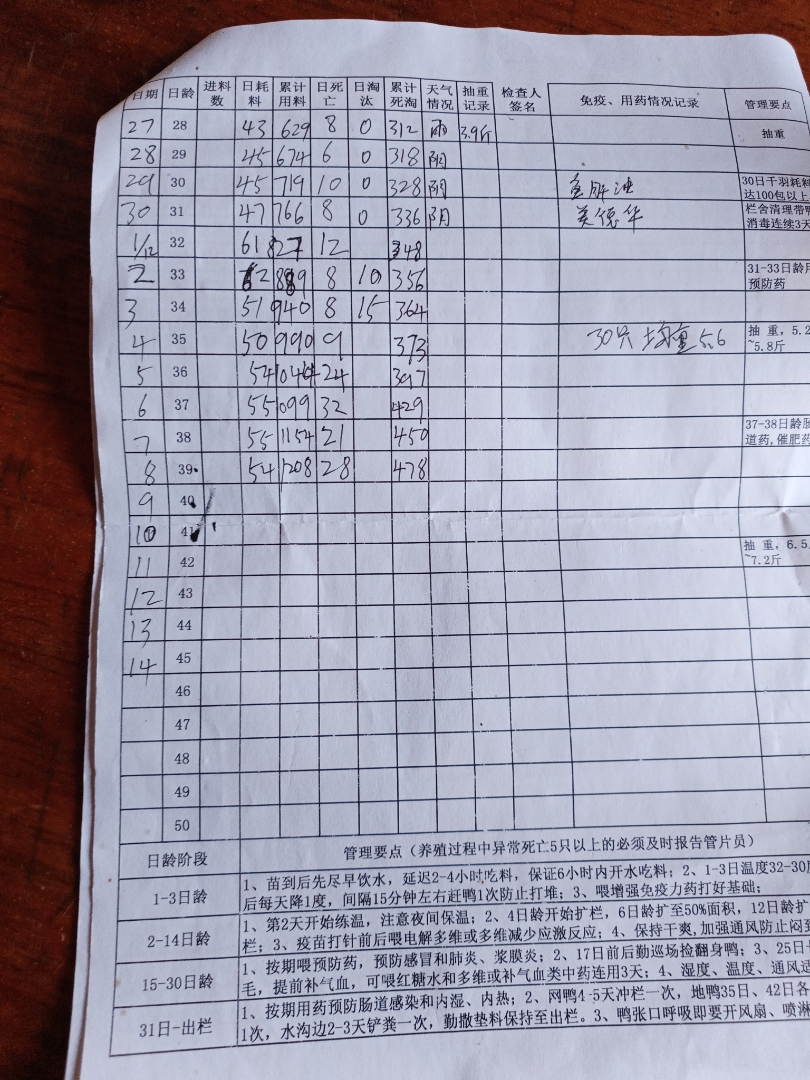 日期 日龄 进料数 日耗料 累计用料 日死亡 日淘汰 累计死淘 天气情况 抽重记录 检查人签名 免疫、用药情况记录 管理要点
27 28 43 629 8 0 312 雨 3.9斤 抽重
28 29 45 674 6 0 318 阴
29 30 45 719 10 0 328 阴 鱼肝油 30日千羽耗料
达100包以上
30 31 47 766 8 0 336 阴 栏舍清理带鸭
消毒连续3天
1/12 32 61 827 12 348
2 33 62 889 8 10 356 31-33日龄用
预防药
3 34 51 940 8 15 364
4 35 50 990 9 373 30只 均重 5.6 抽重，5.2
~5.8斤
5 36 54 1044 24 397
6 37 55 1099 32 429
7 38 55 1154 21 450 37-38日龄肠
道药,催肥药
8 39 54 1208 28 478
9 40
10 41
11 42 抽重，6.5
~7.2斤
12 43
13 44
14 45
46
47
48
49
50
日龄阶段 管理要点（养殖过程中异常死亡5只以上的必须及时报告管片员）
1-3日龄 1、苗到后先尽早饮水，延迟2-4小时吃料，保证6小时内开水吃料；2、1-3日温度32-30
后每天降1度，间隔15分钟左右赶鸭1次防止打堆；3、喂增强免疫力药打好基础；
2-14日龄 1、第2天开始练温，注意夜间保温；2、4日龄开始扩栏，6日龄扩至50%面积，12日龄扩
栏；3、疫苗打针前后喂电解多维或多维减少应激反应；4、保持干爽,加强通风防止闷到
15-30日龄 1、按期喂预防药，预防感冒和肺炎、浆膜炎；2、17日前后勤巡场捡翻身鸭；3、25日
毛，提前补气血，可喂红糖水和多维或补气血类中药连用3天；4、湿度、温度、通风适
31日-出栏 1、按期用药预防肠道感染和内湿、内热；2、网鸭4-5天冲栏一次，地鸭35日、42日各
1次，水沟边2-3天铲粪一次，勤撒垫料保持至出栏。3、鸭张口呼吸即要开风扇、喷淋